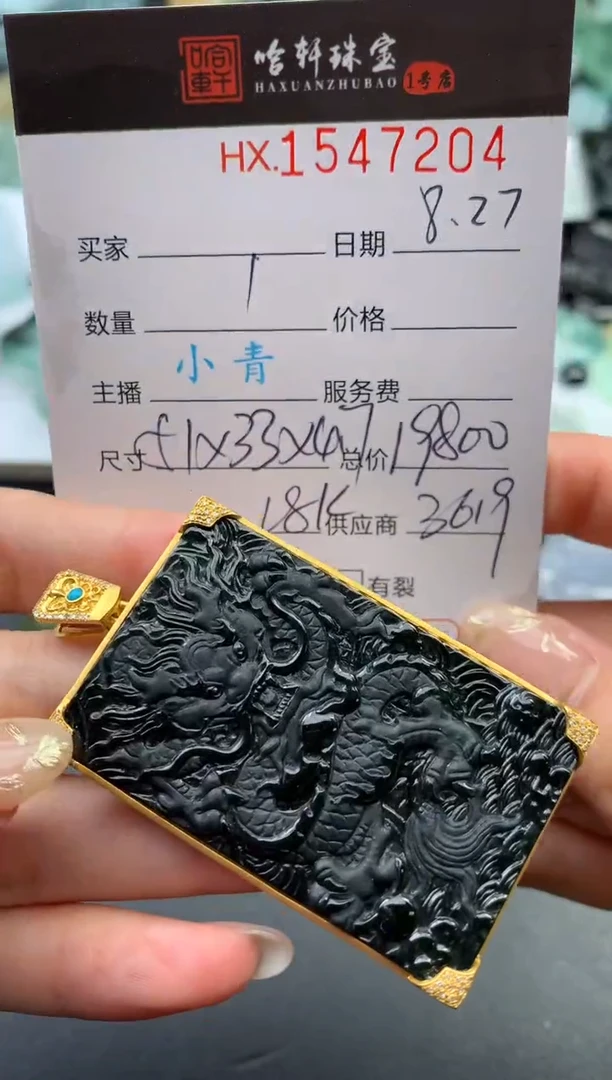 哈轩珠宝
HAXUANZHUBAO 1号店
HX.1547204
买家 日期 8.27
数量 1 价格
主播 小青 服务费
尺寸 51x33x4.7 总价 19800
18K 供应商 3619
有裂